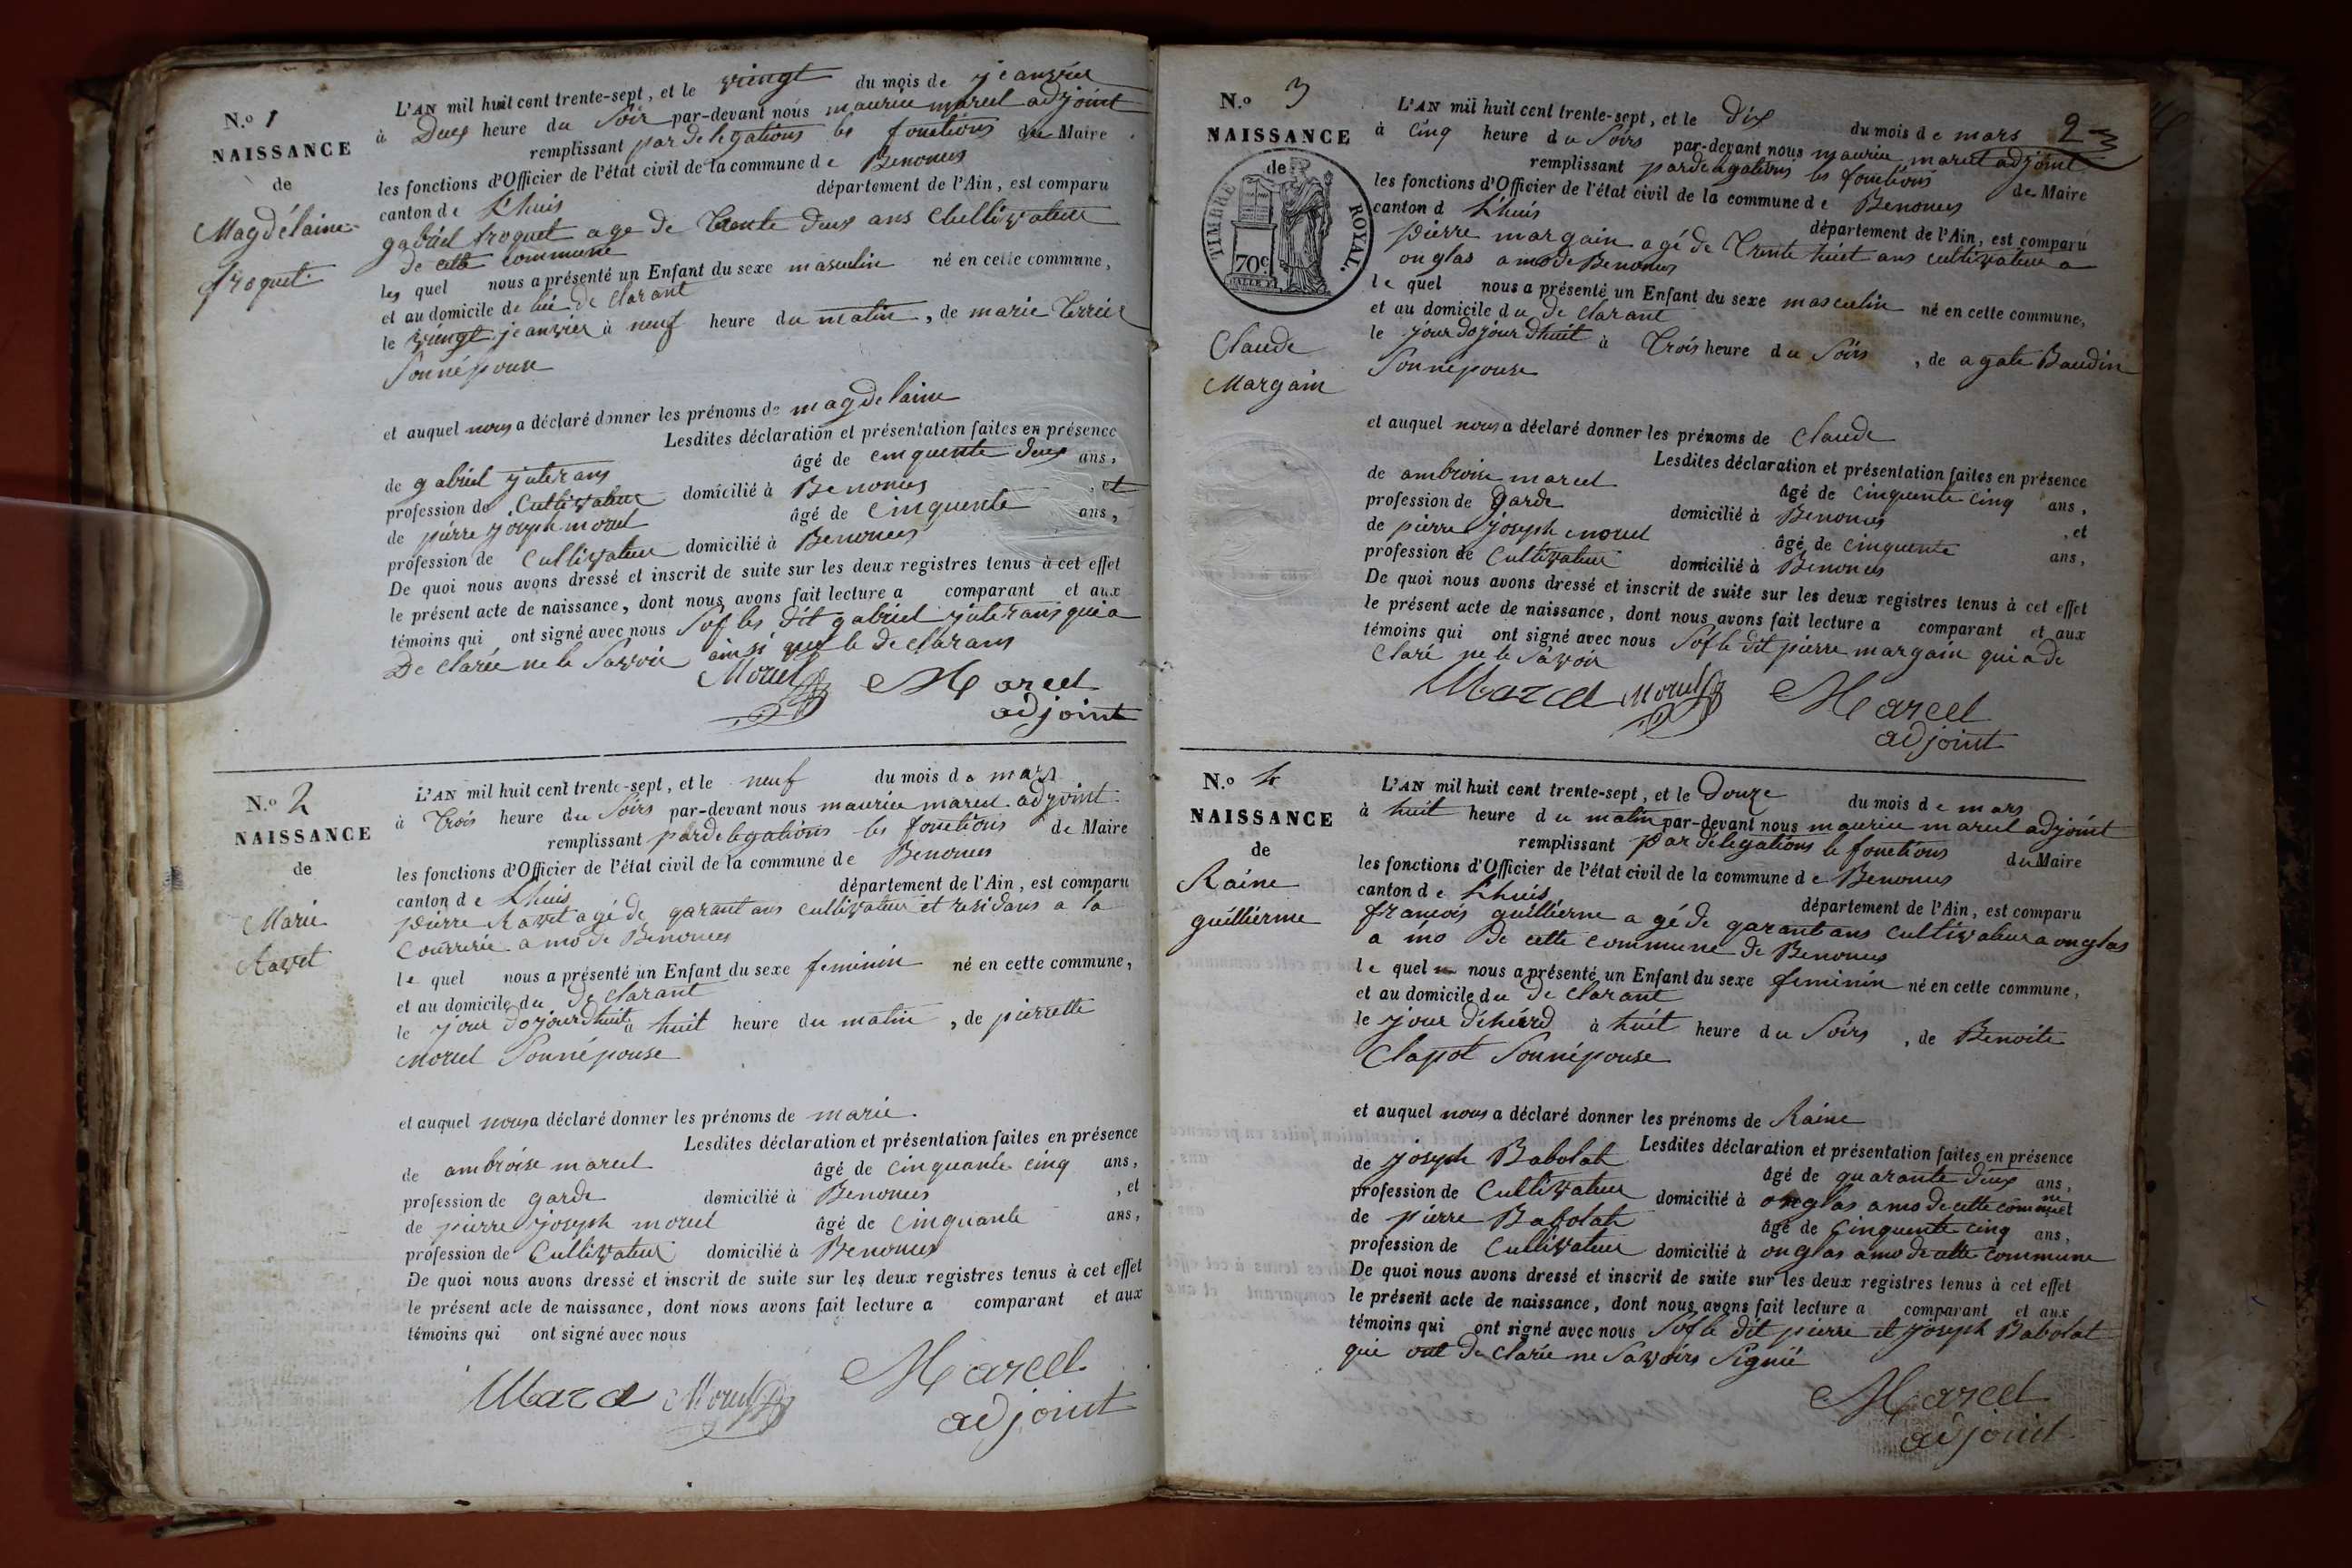 N.o 1
NAISSANCE
de
Magdélaine
froquet
L'AN mil huit cent trente-sept, et le vingt du mois de jeanvier
à Deux heure du Soir par-devant nous maurice marcel adjoint
remplissant par delegations les fonctions du Maire
les fonctions d'Officier de l'état civil de la commune de Benonces
canton de Lhuis département de l'Ain, est comparu
gabriel froquet age de trente deux ans Cultivateur
de cette commune
les quel nous a présenté un Enfant du sexe masculin né en cette commune,
et au domicile de lui de clarant
le vingt jeanvier à neuf heure du matin, de marie
Sonnépouse
et auquel nous a déclaré donner les prénoms de magdelaine
Lesdites déclaration et présentation faites en présence
de gabriel âgé de cinquente deux ans,
profession de Cultivateur domicilié à Benonces , et
de pierre joseph morel âgé de Cinquente ans,
profession de Cultivateur domicilié à Benonces
De quoi nous avons dressé et inscrit de suite sur les deux registres tenus à cet effet
le présent acte de naissance, dont nous avons fait lecture a comparant et aux
témoins qui ont signé avec nous Sof les dit gabriel qui a
De clarée ne le Savoir ainsi que le de clarans
Morel Marcel
adjoint
N.o 2
NAISSANCE
de
Marie
Ravet
L'AN mil huit cent trente-sept, et le neuf du mois de mars
à Trois heure du Soirs par-devant nous maurice marcel adjoint
remplissant par delegations les fonctions de Maire
les fonctions d'Officier de l'état civil de la commune de Benonces
canton de Lhuis département de l'Ain, est comparu
pierre Ravet agé de garant ans cultivateur et residans a la
Courrerie amo de Benonces
le quel nous a présenté un Enfant du sexe feminin né en cette commune,
et au domicile du de clarant
le jour dojourdhuit a huit heure du matin, de pierrette
morel Sonnépouse
et auquel nous a déclaré donner les prénoms de marie
Lesdites déclaration et présentation faites en présence
de ambroise marcel âgé de cinquante cinq ans,
profession de garde domicilié à Benonces , et
de pierre joseph morel âgé de cinquante ans,
profession de Cultivateur domicilié à Benonces
De quoi nous avons dressé et inscrit de suite sur les deux registres tenus à cet effet
le présent acte de naissance, dont nous avons fait lecture a comparant et aux
témoins qui ont signé avec nous
Marcel Morel Marcel
adjoint
2
N.o 3
NAISSANCE
de
TIMBRE ROYAL.
70c
Claude
Margain
L'AN mil huit cent trente-sept, et le dix du mois de mars
à cinq heure du Soirs par-devant nous maurice marcel adjoint
remplissant par delegations les fonctions de Maire
les fonctions d'Officier de l'état civil de la commune de Benonces
canton d Lhuis département de l'Ain, est comparu
pierre margain agé de Trente huit ans cultivateur a
onglas amo de Benonces
le quel nous a présenté un Enfant du sexe masculin né en cette commune,
et au domicile du de clarant
le jour dojourdhuit à Trois heure du Soirs, de agate Baudin
Sonnépouse
et auquel nous a déclaré donner les prénoms de Claude
Lesdites déclaration et présentation faites en présence
de ambroise marcel âgé de cinquente cinq ans,
profession de garde domicilié à Benonces , et
de pierre joseph morel âgé de cinquente ans,
profession de Cultivateur domicilié à Benonces
De quoi nous avons dressé et inscrit de suite sur les deux registres tenus à cet effet
le présent acte de naissance, dont nous avons fait lecture a comparant et aux
témoins qui ont signé avec nous Sof le dit pierre margain qui a de
claré ne le Savoir
Marcel Morel Marcel
adjoint
N.o 4
NAISSANCE
de
Raine
guillierme
L'AN mil huit cent trente-sept, et le Douze du mois de mars
à huit heure du matin par-devant nous maurice marcel adjoint
remplissant par délegations le fonctions du Maire
les fonctions d'Officier de l'état civil de la commune de Benonces
canton de Lhuis département de l'Ain, est comparu
francois guillierme a gé de garant ans cultivateur a onglas
a mo de cette commune de Benonces
le quel nous a présenté un Enfant du sexe feminin né en cette commune,
et au domicile du de clarant
le jour d'hierd à huit heure du Soirs, de Benoite
Clapot Sonnépouse
et auquel nous a déclaré donner les prénoms de Raine
Lesdites déclaration et présentation faites en présence
de joseph Babolat âgé de quarante deux ans,
profession de Cultivateur domicilié à onglas amo de cette commune et
de pierre Babolat âgé de cinquente cinq ans,
profession de Cultivateur domicilié à onglas amo de cette commune
De quoi nous avons dressé et inscrit de suite sur les deux registres tenus à cet effet
le présent acte de naissance, dont nous avons fait lecture a comparant et aux
témoins qui ont signé avec nous Sof le dit pierre et joseph Babolat
qui ont de clarée ne Savoirs Signié
Marcel
adjoint